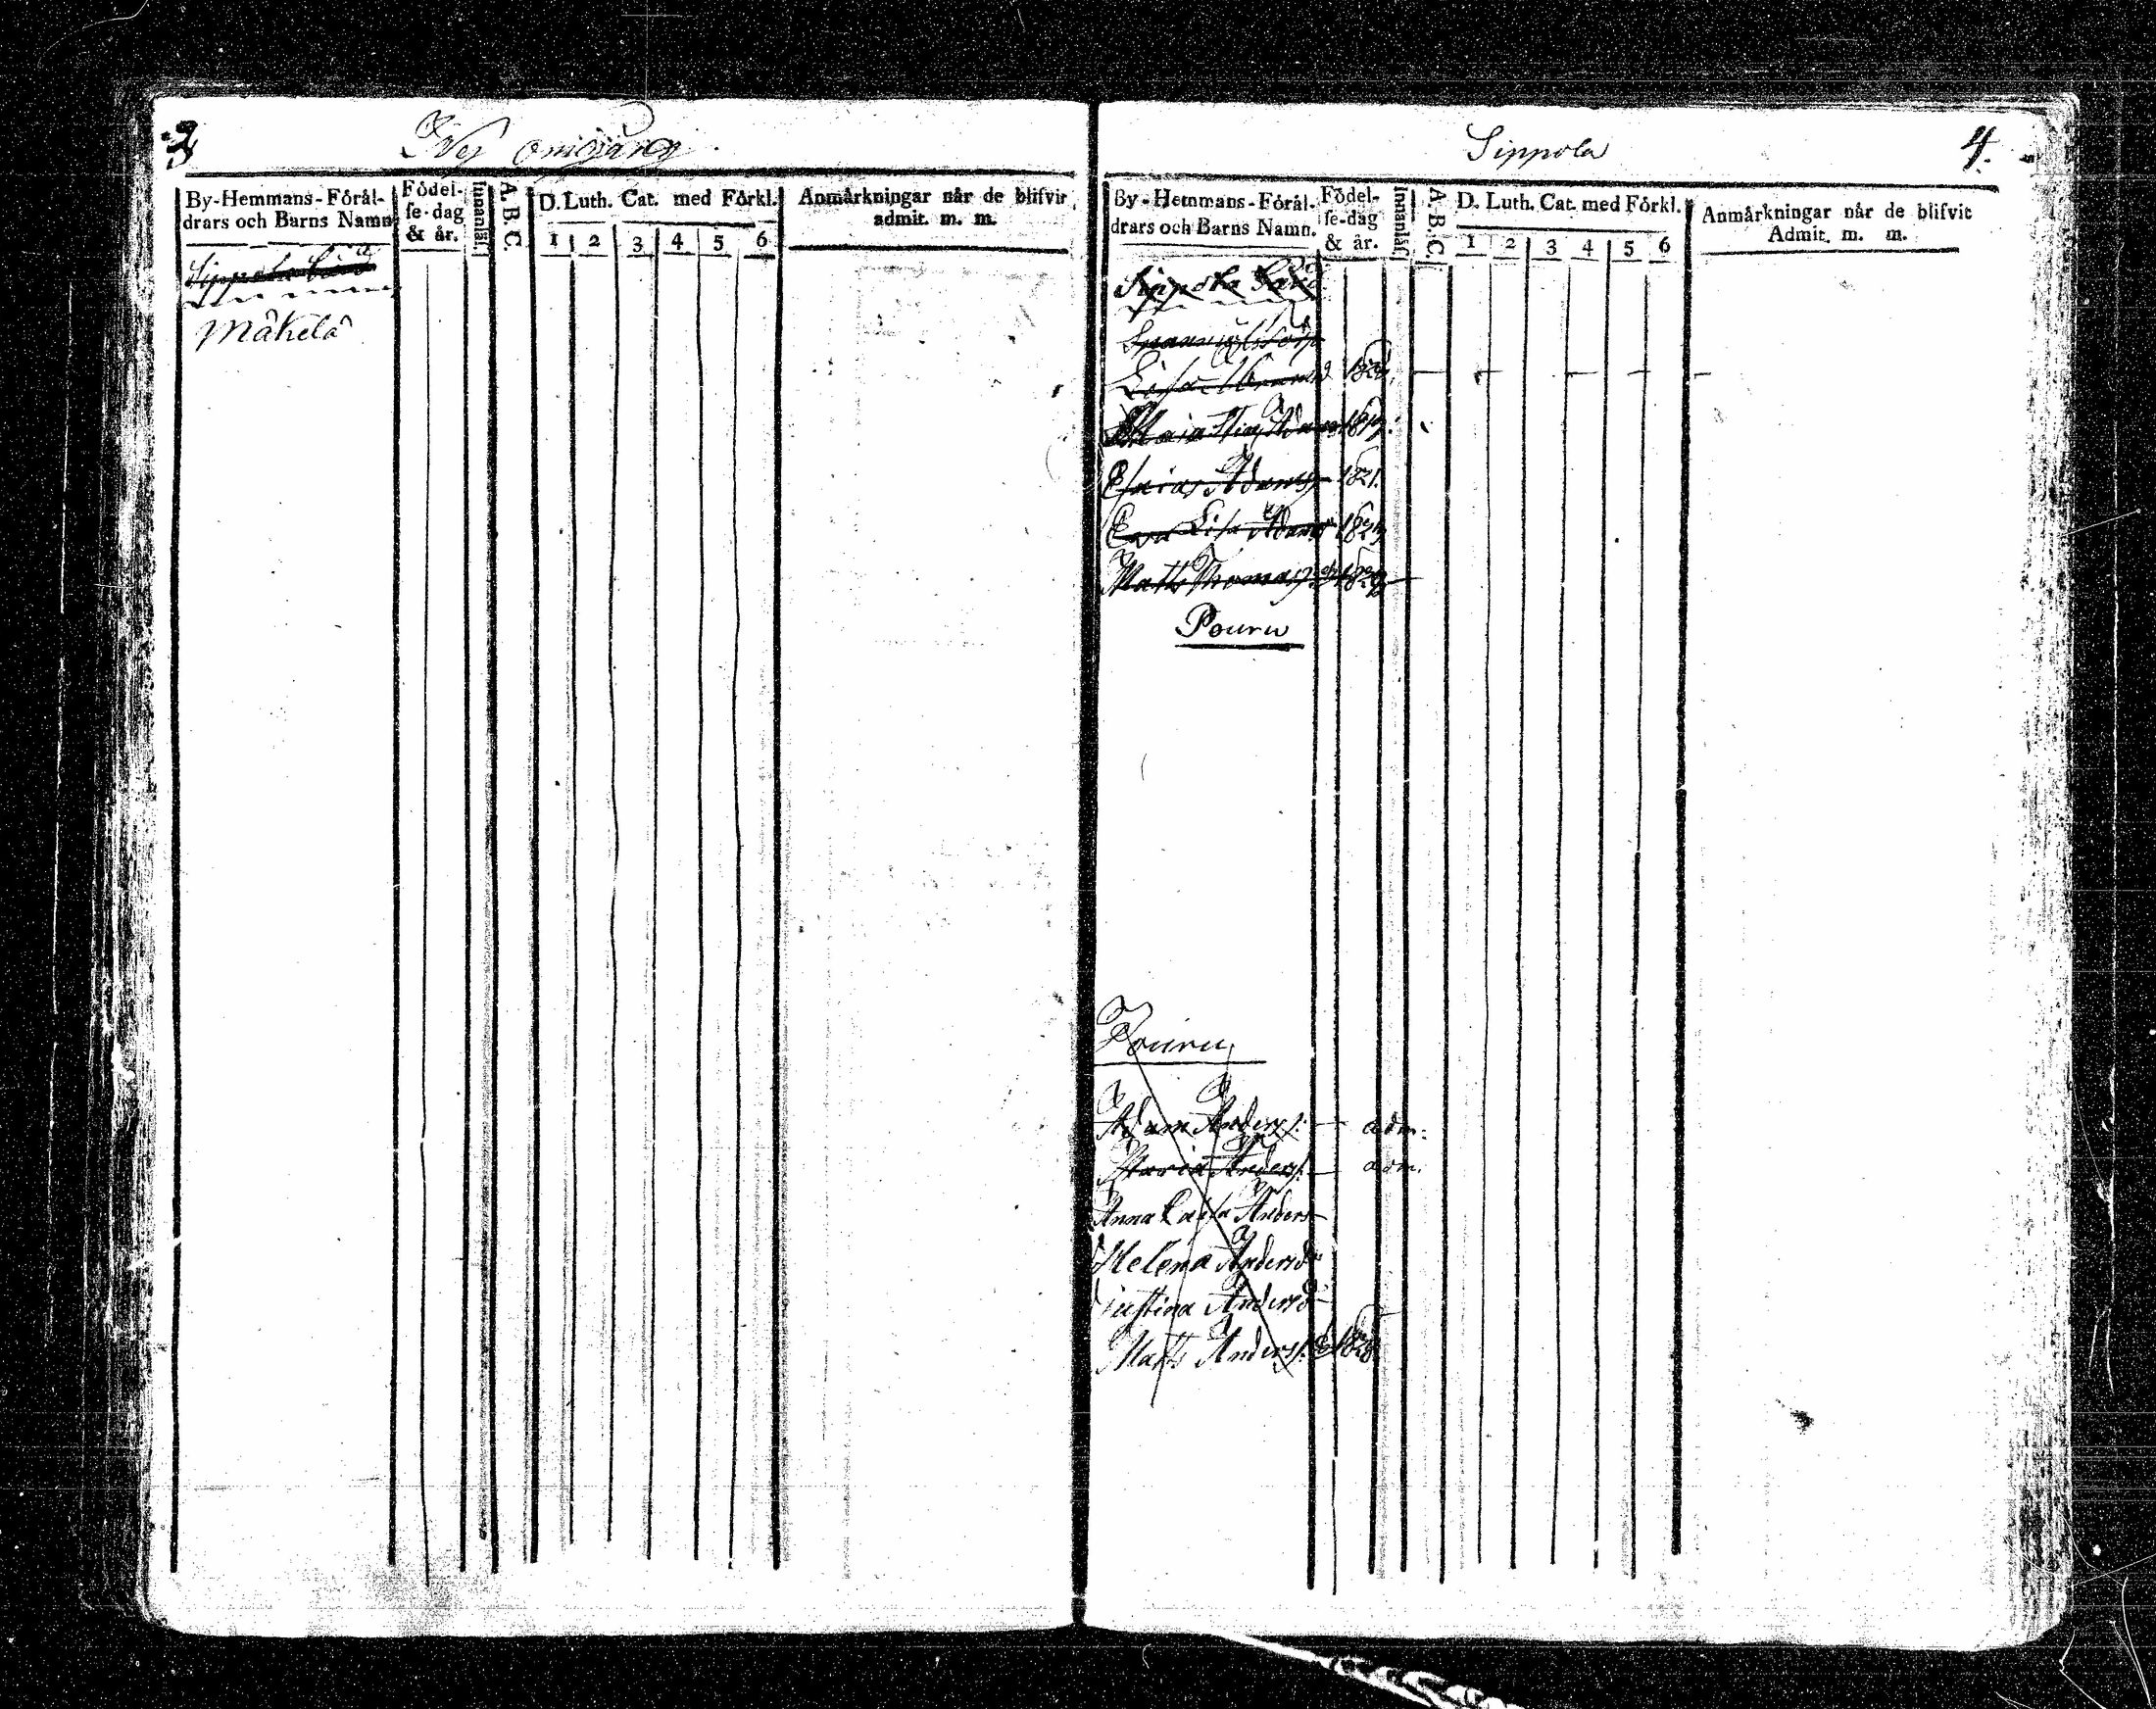 3
By-Hemmans-Förål-
drars och Barns Namn
Födel-
se-dag
& år.
Innanläs.
A. B. C.
D. Luth. Cat. med Förkl.
1 2 3 4 5 6
Anmärkningar når de blifvit
admit. m. m.
Sippola
Mäkelä
Sippola
4.
By-Hemmans-Förål-
drars och Barns Namn.
Födel-
se-dag
& år.
Innanläs.
A. B. C.
D. Luth. Cat. med Förkl.
1 2 3 4 5 6
Anmärkningar når de blifvit
Admit. m. m.
Sippola
Lisa
Maia Stina
Esaias Adamss 1821.
Eva Lisa
Matts Thomas
Pouru
Pouru
Adam Anderss: — adm:
Maria Anders — adm.
Anna Caisa Anders
Helena Andersd
Justina Andersd
Matts Anderss: 1828